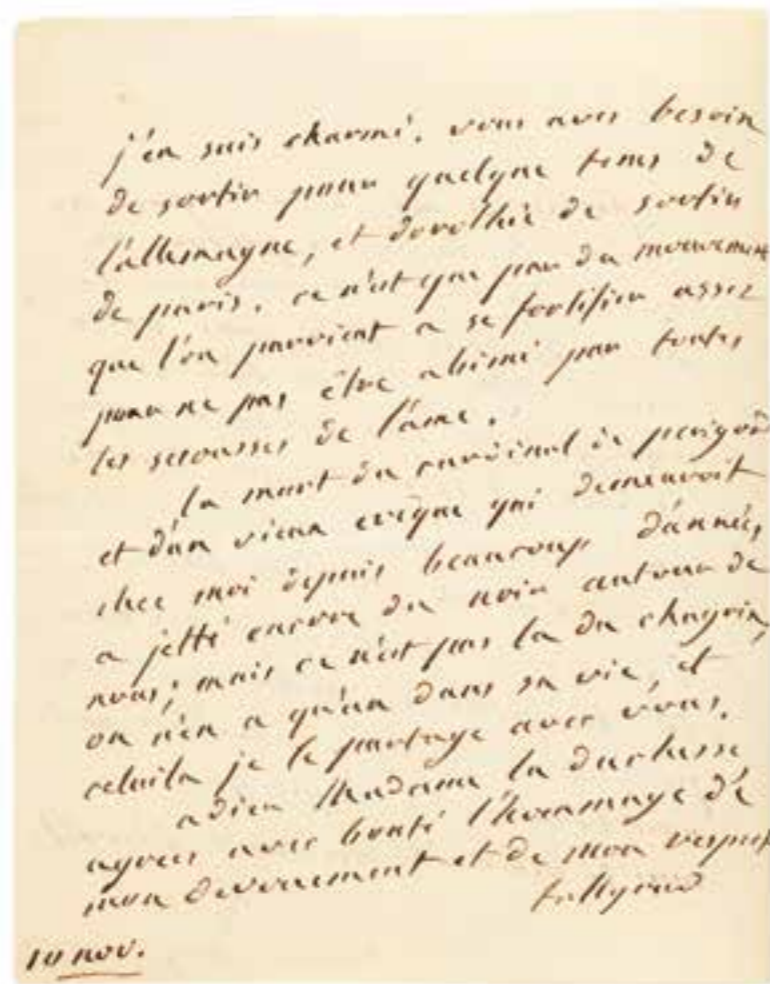 j'en suis charmé. vous avez besoin
de sortir pour quelque tems de
l'allemagne, et dorothée de sortir
de paris. ce n'est que par du mouvement
que l'on parvient a se fortifier assez
pour ne pas être abimé par toutes
les secousses de l'ame.
la mort du cardinal de perigord
et d'un vieux evêque qui demeuroit
chez moi depuis beaucoup d'années,
a jetté encore du noir autour de
nous; mais ce n'est pas la du chagrin,
on n'en a qu'un dans sa vie, et
celuila je le partage avec vous.
adieu Madame la duchesse,
agreez avec bonté l'hommage de
mon devouement et de mon respect
talleyrand
10 nov.